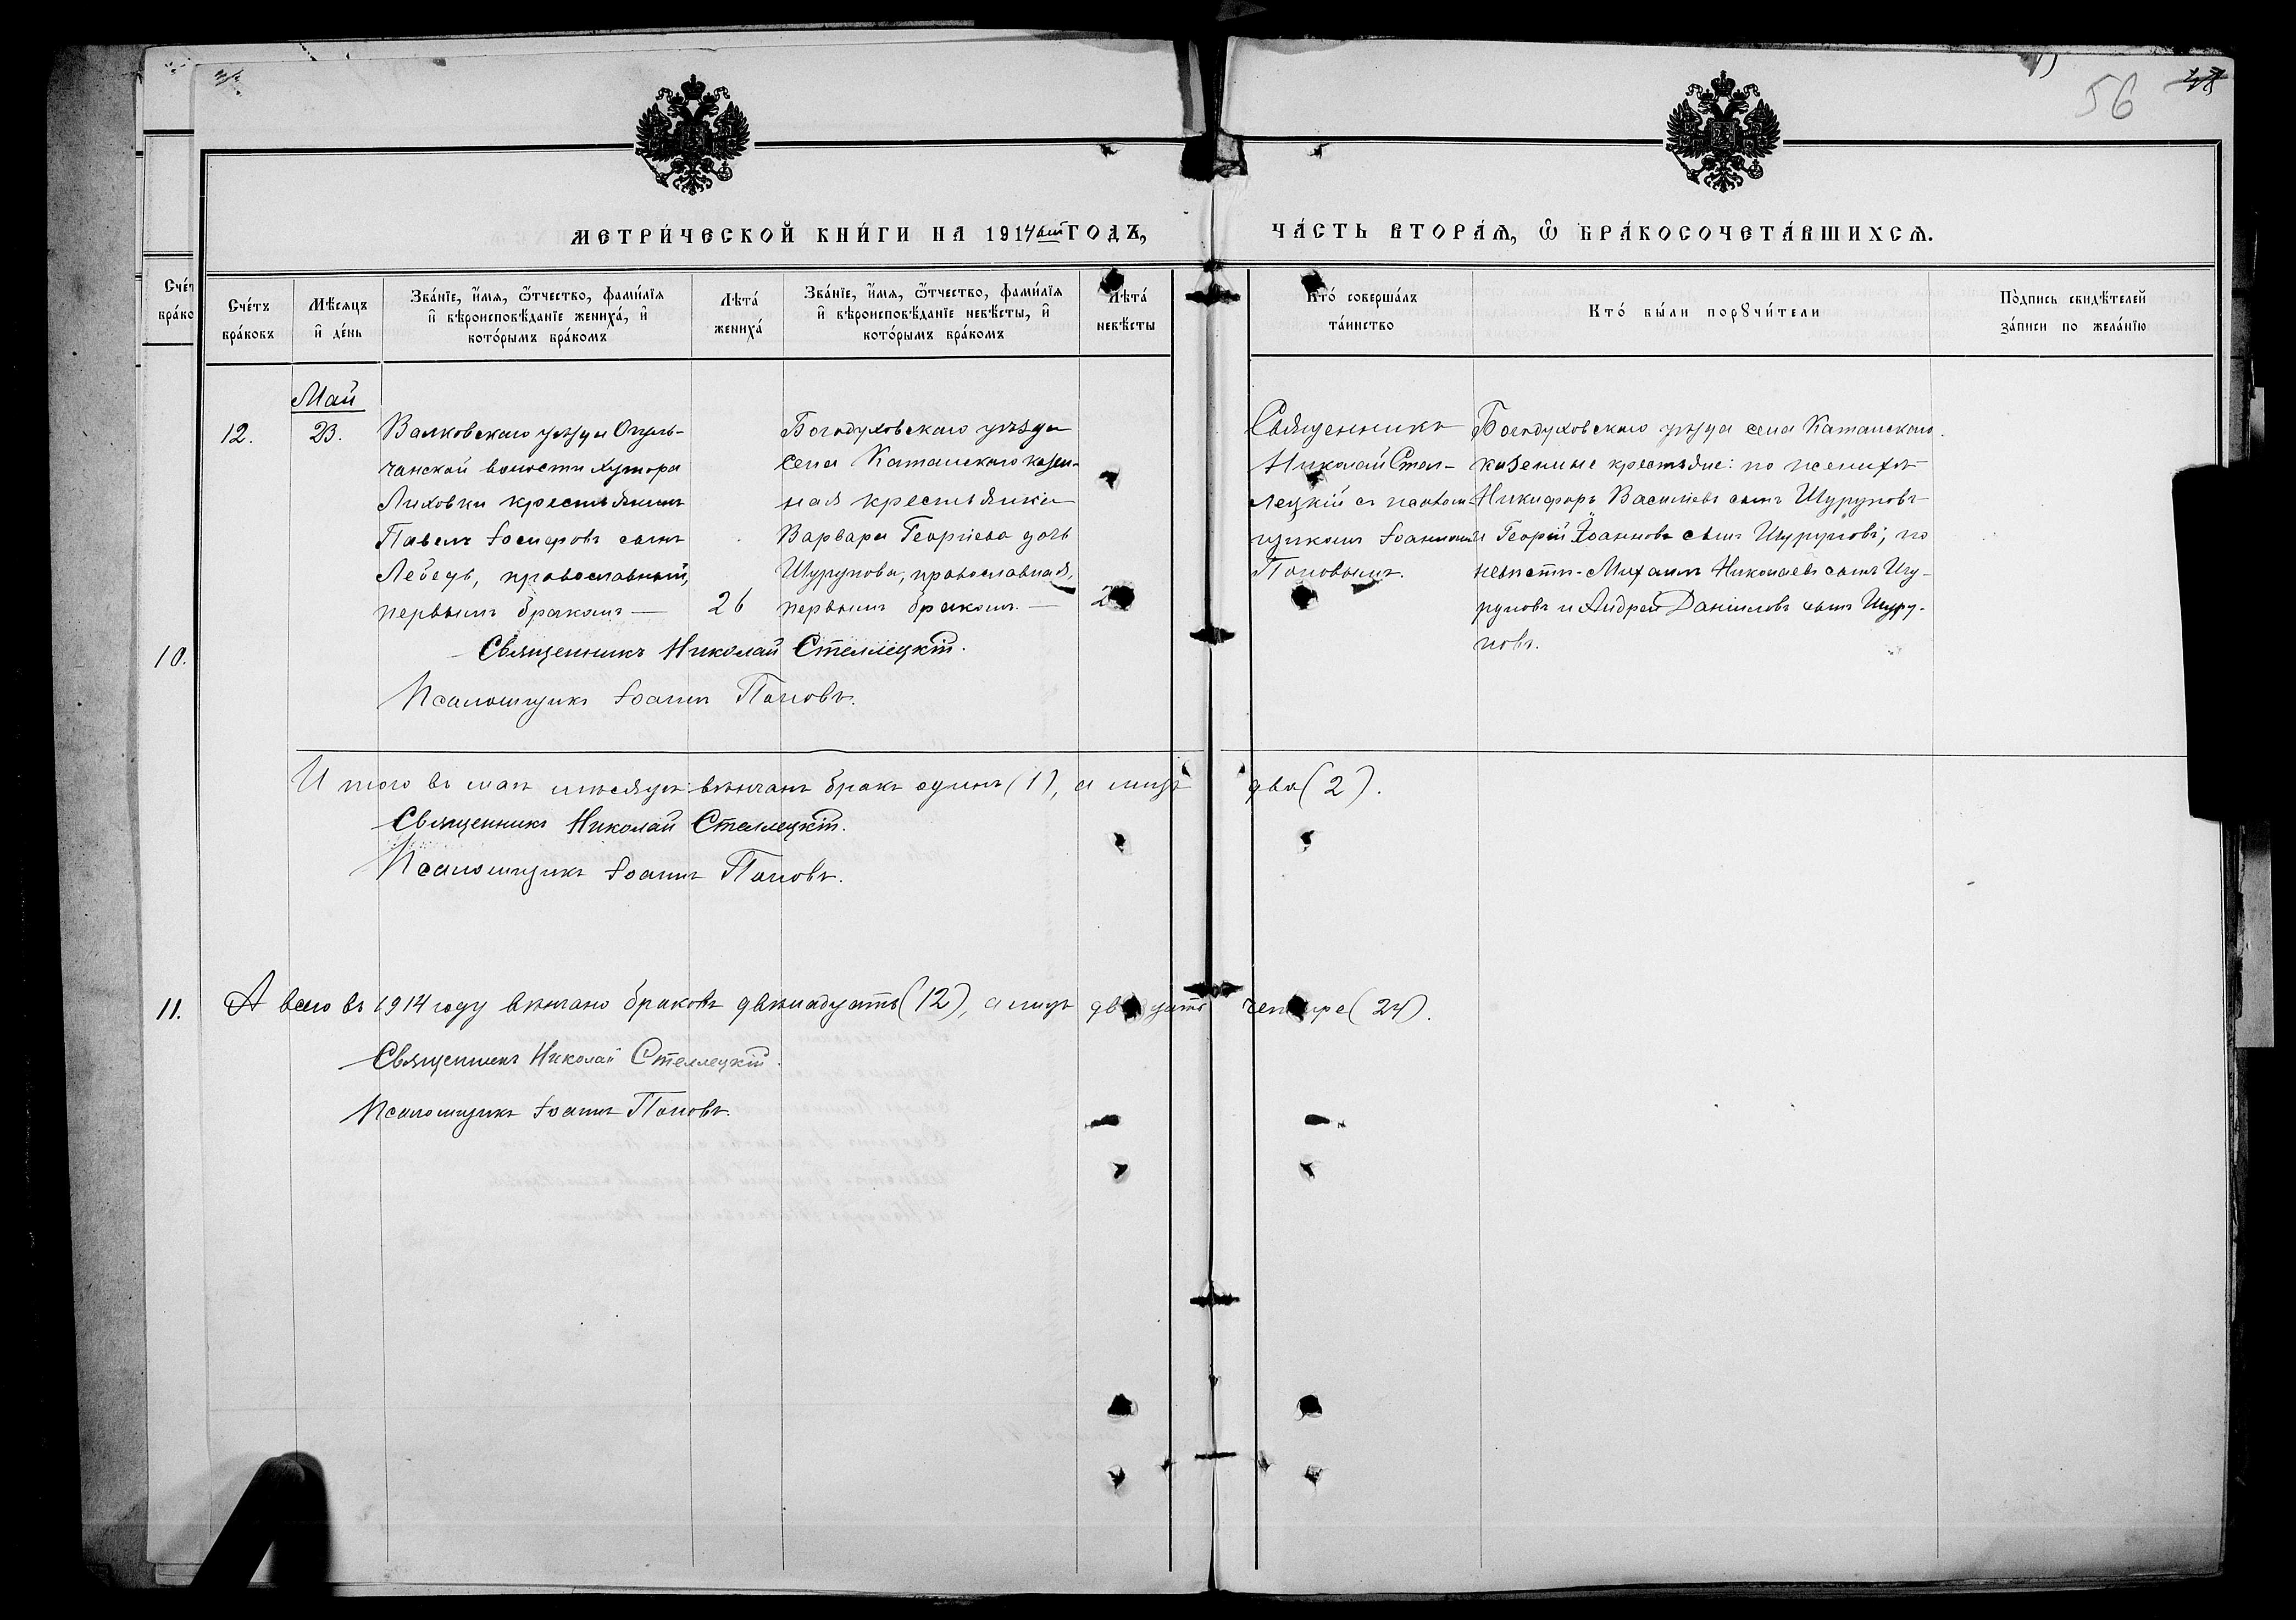 56
МЕТРИ́ЧЕСКОЙ КНИ́ГИ НА 1914ый ГОДЪ,
ЧА́СТЬ ВТОРА́Ѧ, Ѽ БРА́КОСОЧЕТА́ВШИХСѦ.
Сче́тъ бра́ковъ
Мѣ́сяцъ и҆ де́нь
Зва́нїе, и҆́мѧ, ѻ҆́тчество, фами́лїѧ
и҆ вѣроисповѣ́данїе жениха́, и҆
кото́рымъ бра́комъ
Лѣта́ жениха́
Зва́нїе, и҆́мѧ, ѻ҆́тчество, фами́лїѧ
и҆ вѣроисповѣ́данїе невѣ́сты, и҆
кото́рымъ бра́комъ
Лѣта́ невѣ́сты
Кто́ соверша́лъ та́инство
Кто́ бы́ли порꙋчи́тели
По́дпись свидѣ́телей
за́писи по жела́нїю
12.
Май
23.
Валковскаго уѣзда Огуль-
чанской волости хутора
Лиховки крестьянинъ
Павелъ Іосифовъ сынъ
Лебедь, православный,
первымъ бракомъ —
26
Богодуховскаго уѣзда
села Катанскаго казен-
ная крестьянка
Варвара Георгіева дочь
Шурупова, православная,
первымъ бракомъ. —
Священникъ
Николай Стел-
лецкій съ псалом-
щикомъ Іоанномъ
Поповымъ.
Богодуховскаго уѣзда села Катанскаго
казенные крестьяне: по женихѣ
Никифоръ Василіевъ сынъ Шуруповъ
и Георгій Іоанновъ сынъ Шуруповъ; по
невѣстѣ - Михаилъ Николаевъ сынъ Шу-
руповъ и Андрей Даніиловъ сынъ Шуру-
повъ.
Священникъ Николай Стеллецкій.
Псаломщикъ Іоаннъ Поповъ.
10.
Итого въ маѣ мѣсяцѣ вѣнчанъ бракъ одинъ (1), а лицъ два (2).
Священникъ Николай Стеллецкій.
Псаломщикъ Іоаннъ Поповъ.
11.
А всего въ 1914 году вѣнчано браковъ двѣнадцать (12), а лицъ двадцать четыре (24).
Священникъ Николай Стеллецкій.
Псаломщикъ Іоаннъ Поповъ.